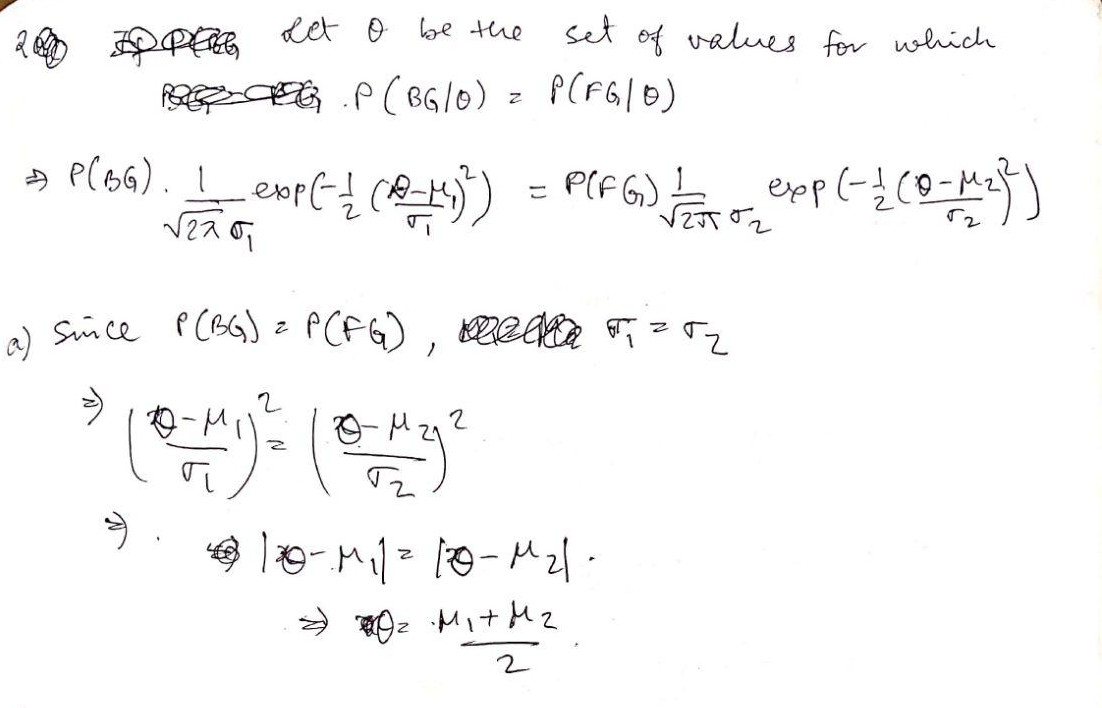 2 Let θ be the set of values for which
P(BG/θ) = P(FG/θ)
⇒ P(BG). 1/(√2π σ₁) exp(-1/2 ((θ-μ₁)/σ₁)²) = P(FG) 1/(√2π σ₂) exp(-1/2 ((θ-μ₂)/σ₂)²)
a) Since P(BG) = P(FG), σ₁ = σ₂
⇒ ((θ-μ₁)/σ₁)² = ((θ-μ₂)/σ₂)²
⇒ .
|θ-μ₁| = |θ-μ₂| .
⇒ θ = μ₁+μ₂/2 .